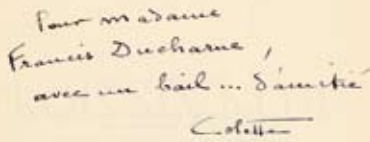 Pour madame
Francis Ducharne,
avec un bail... d'amitié
Colette